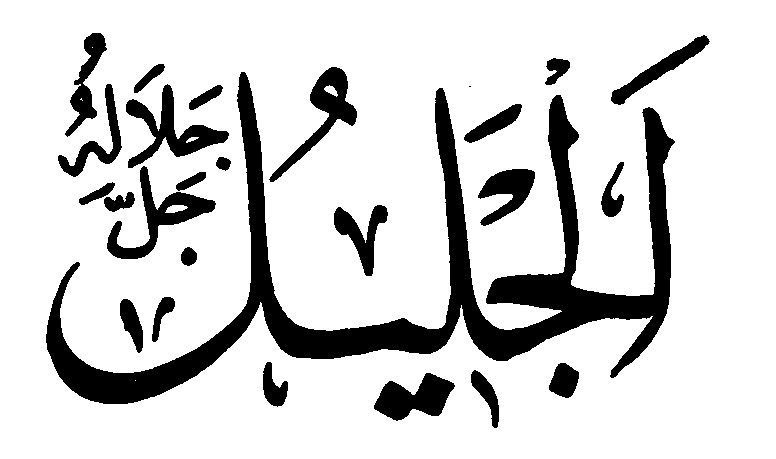 اَلْجَلِيلُ
جَلَّ جَلَالُهُ